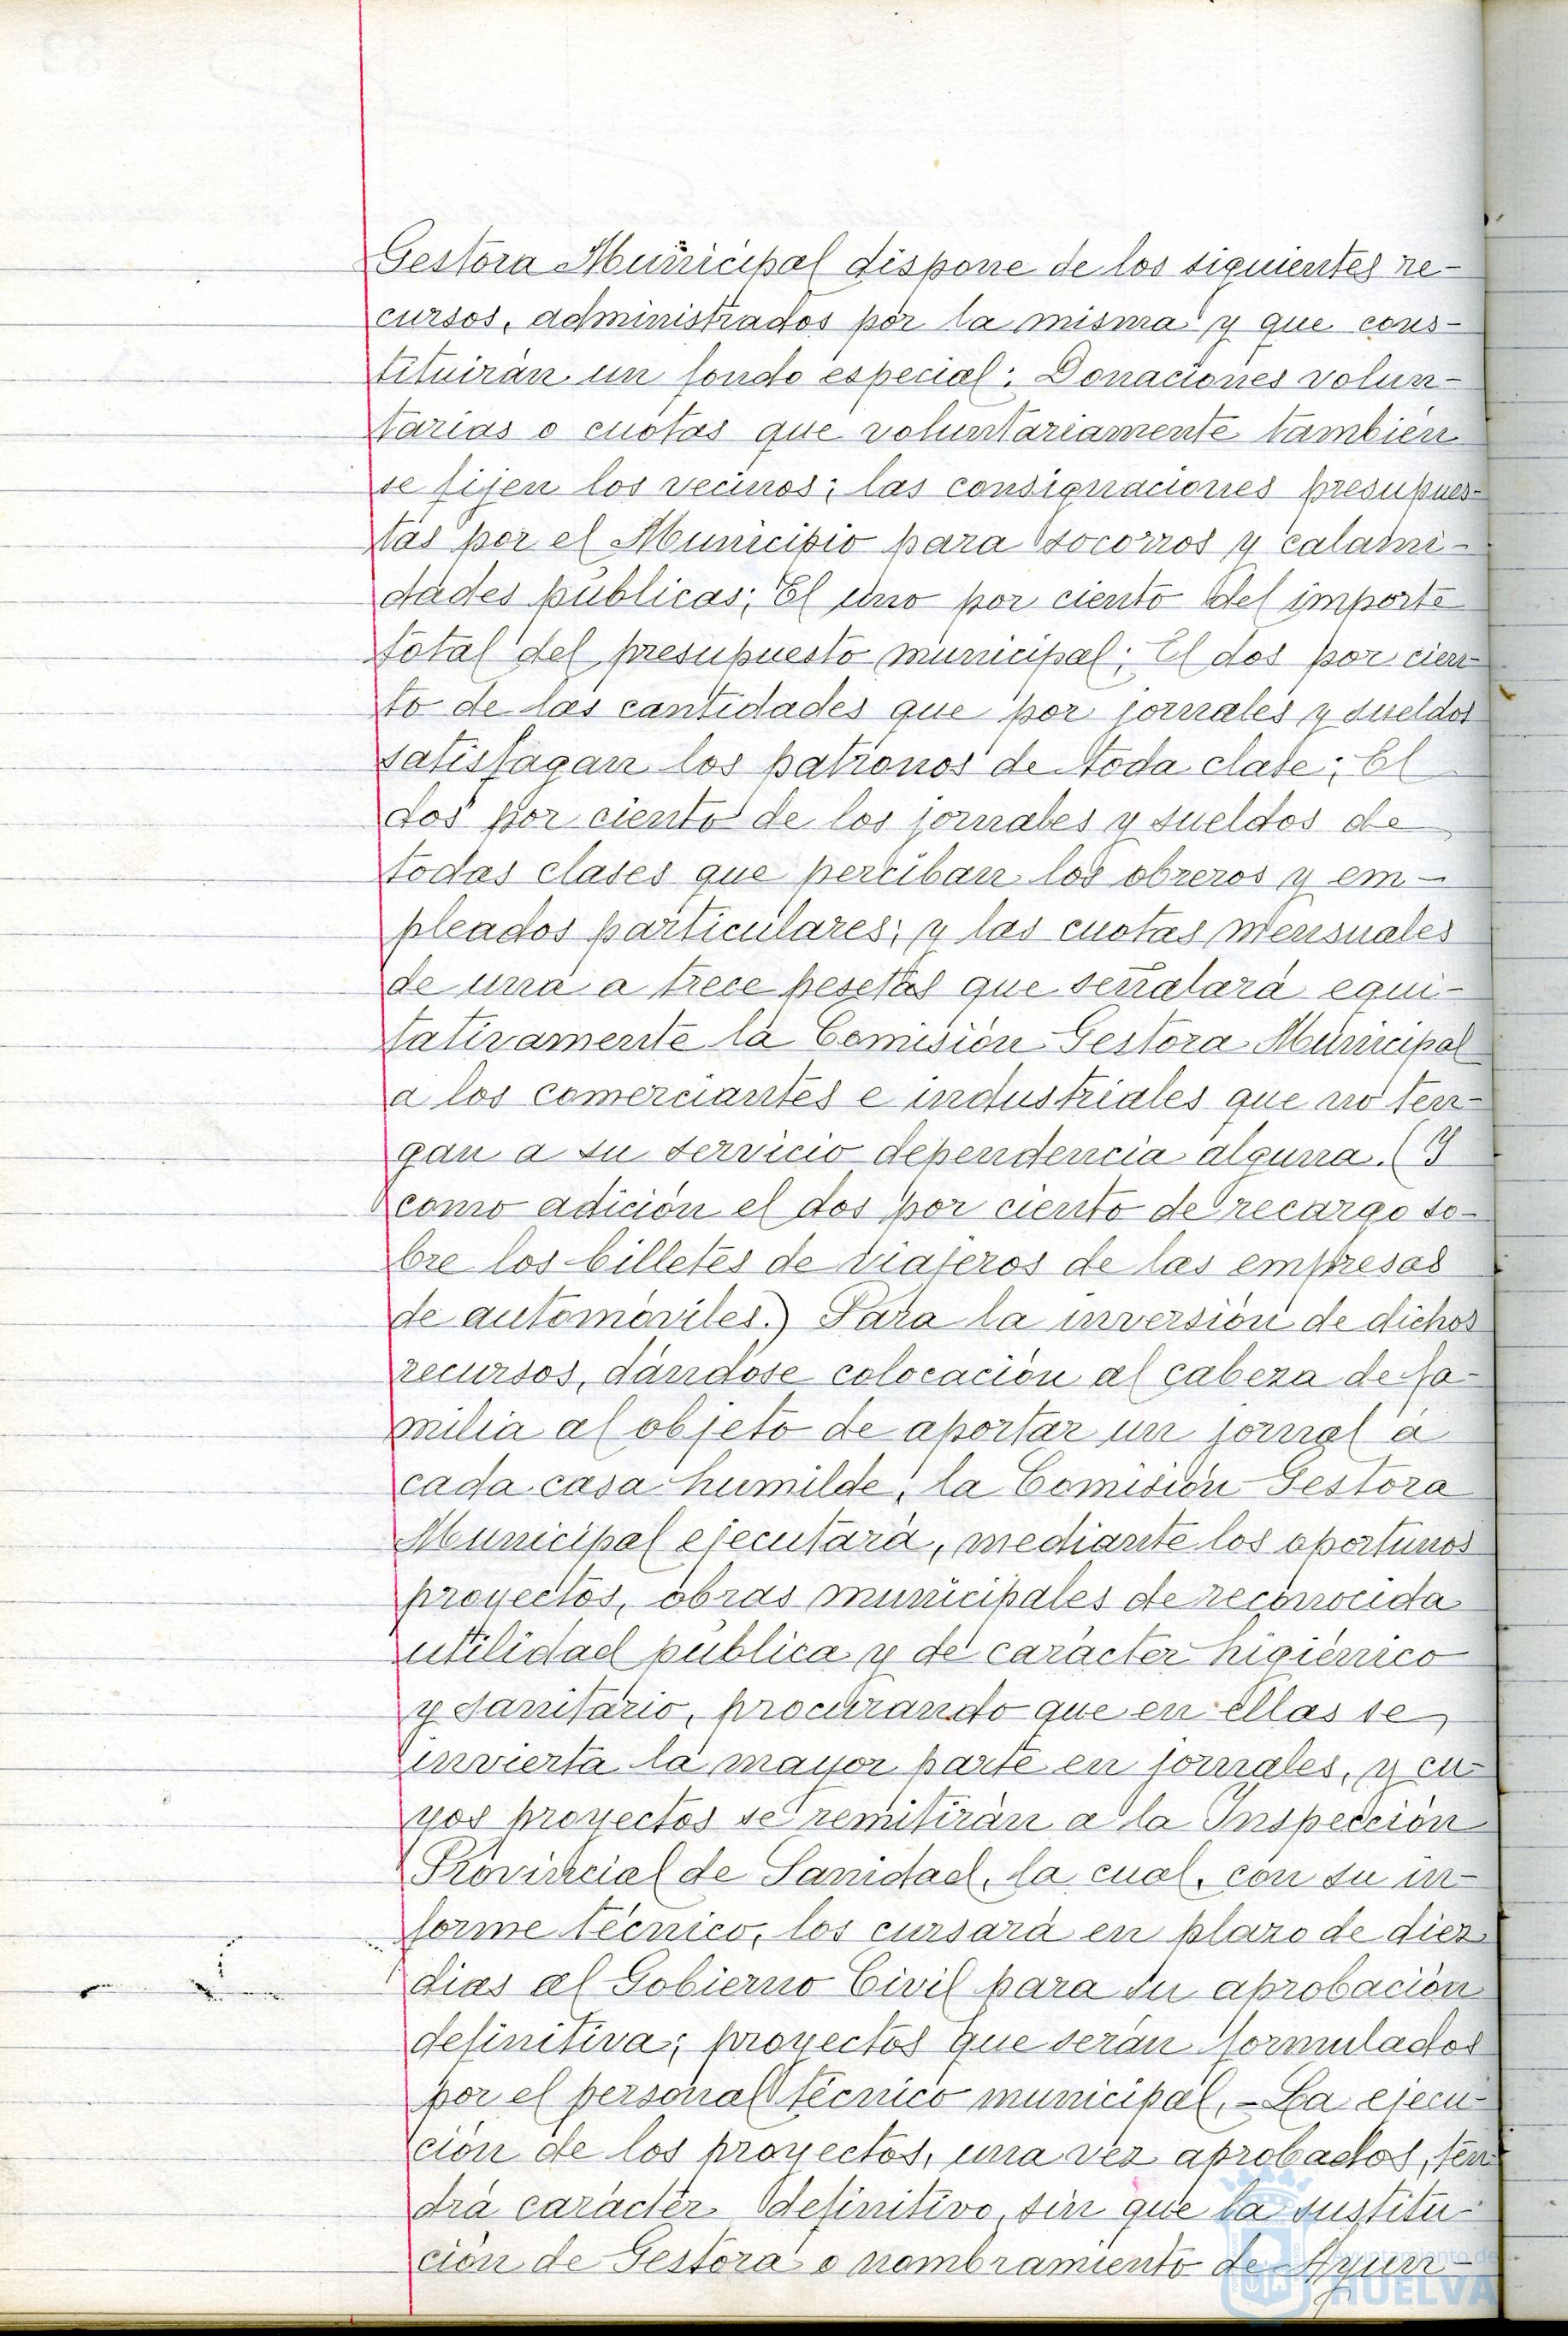 Gestora Municipal dispone de los siguientes re-
cursos, administrados por la misma y que cons-
tituirán un fondo especial: Donaciones volun-
tarias o cuotas que voluntariamente también
se fijen los vecinos; las consignaciones presupues-
tas por el Municipio para socorros y calami-
dades públicas; El uno por ciento del importe
total del presupuesto municipal; El dos por cien-
to de las cantidades que por jornales y sueldos
satisfagan los patronos de toda clase; El
dos por ciento de los jornales y sueldos de
todas clases que perciban los obreros y em-
pleados particulares; y las cuotas mensuales
de una a trece pesetas que señalará equi-
tativamente la Comisión Gestora Municipal
a los comerciantes e industriales que no ten-
gan a su servicio dependencia alguna. (Y
como adición el dos por ciento de recargo so-
bre los billetes de viajeros de las empresas
de automóviles.) Para la inversión de dichos
recursos, dándose colocación al cabeza de fa-
milia al objeto de aportar un jornal a
cada casa humilde, la Comisión Gestora
Municipal ejecutará, mediante los oportunos
proyectos, obras municipales de reconocida
utilidad pública y de carácter higiénico
y sanitario, procurando que en ellas se
invierta la mayor parte en jornales, y cu-
yos proyectos se remitirán a la Inspección
Provincial de Sanidad, la cual, con su in-
forme técnico, los cursará en plazo de diez
dias al Gobierno Civil para su aprobación
definitiva; proyectos que serán formulados
por el personal técnico municipal.- La ejecu-
ción de los proyectos, una vez aprobados, ten
drá carácter definitivo, sin que la sustitu-
ción de Gestora o nombramiento de Ayun-
Ayuntamiento de
HUELVA